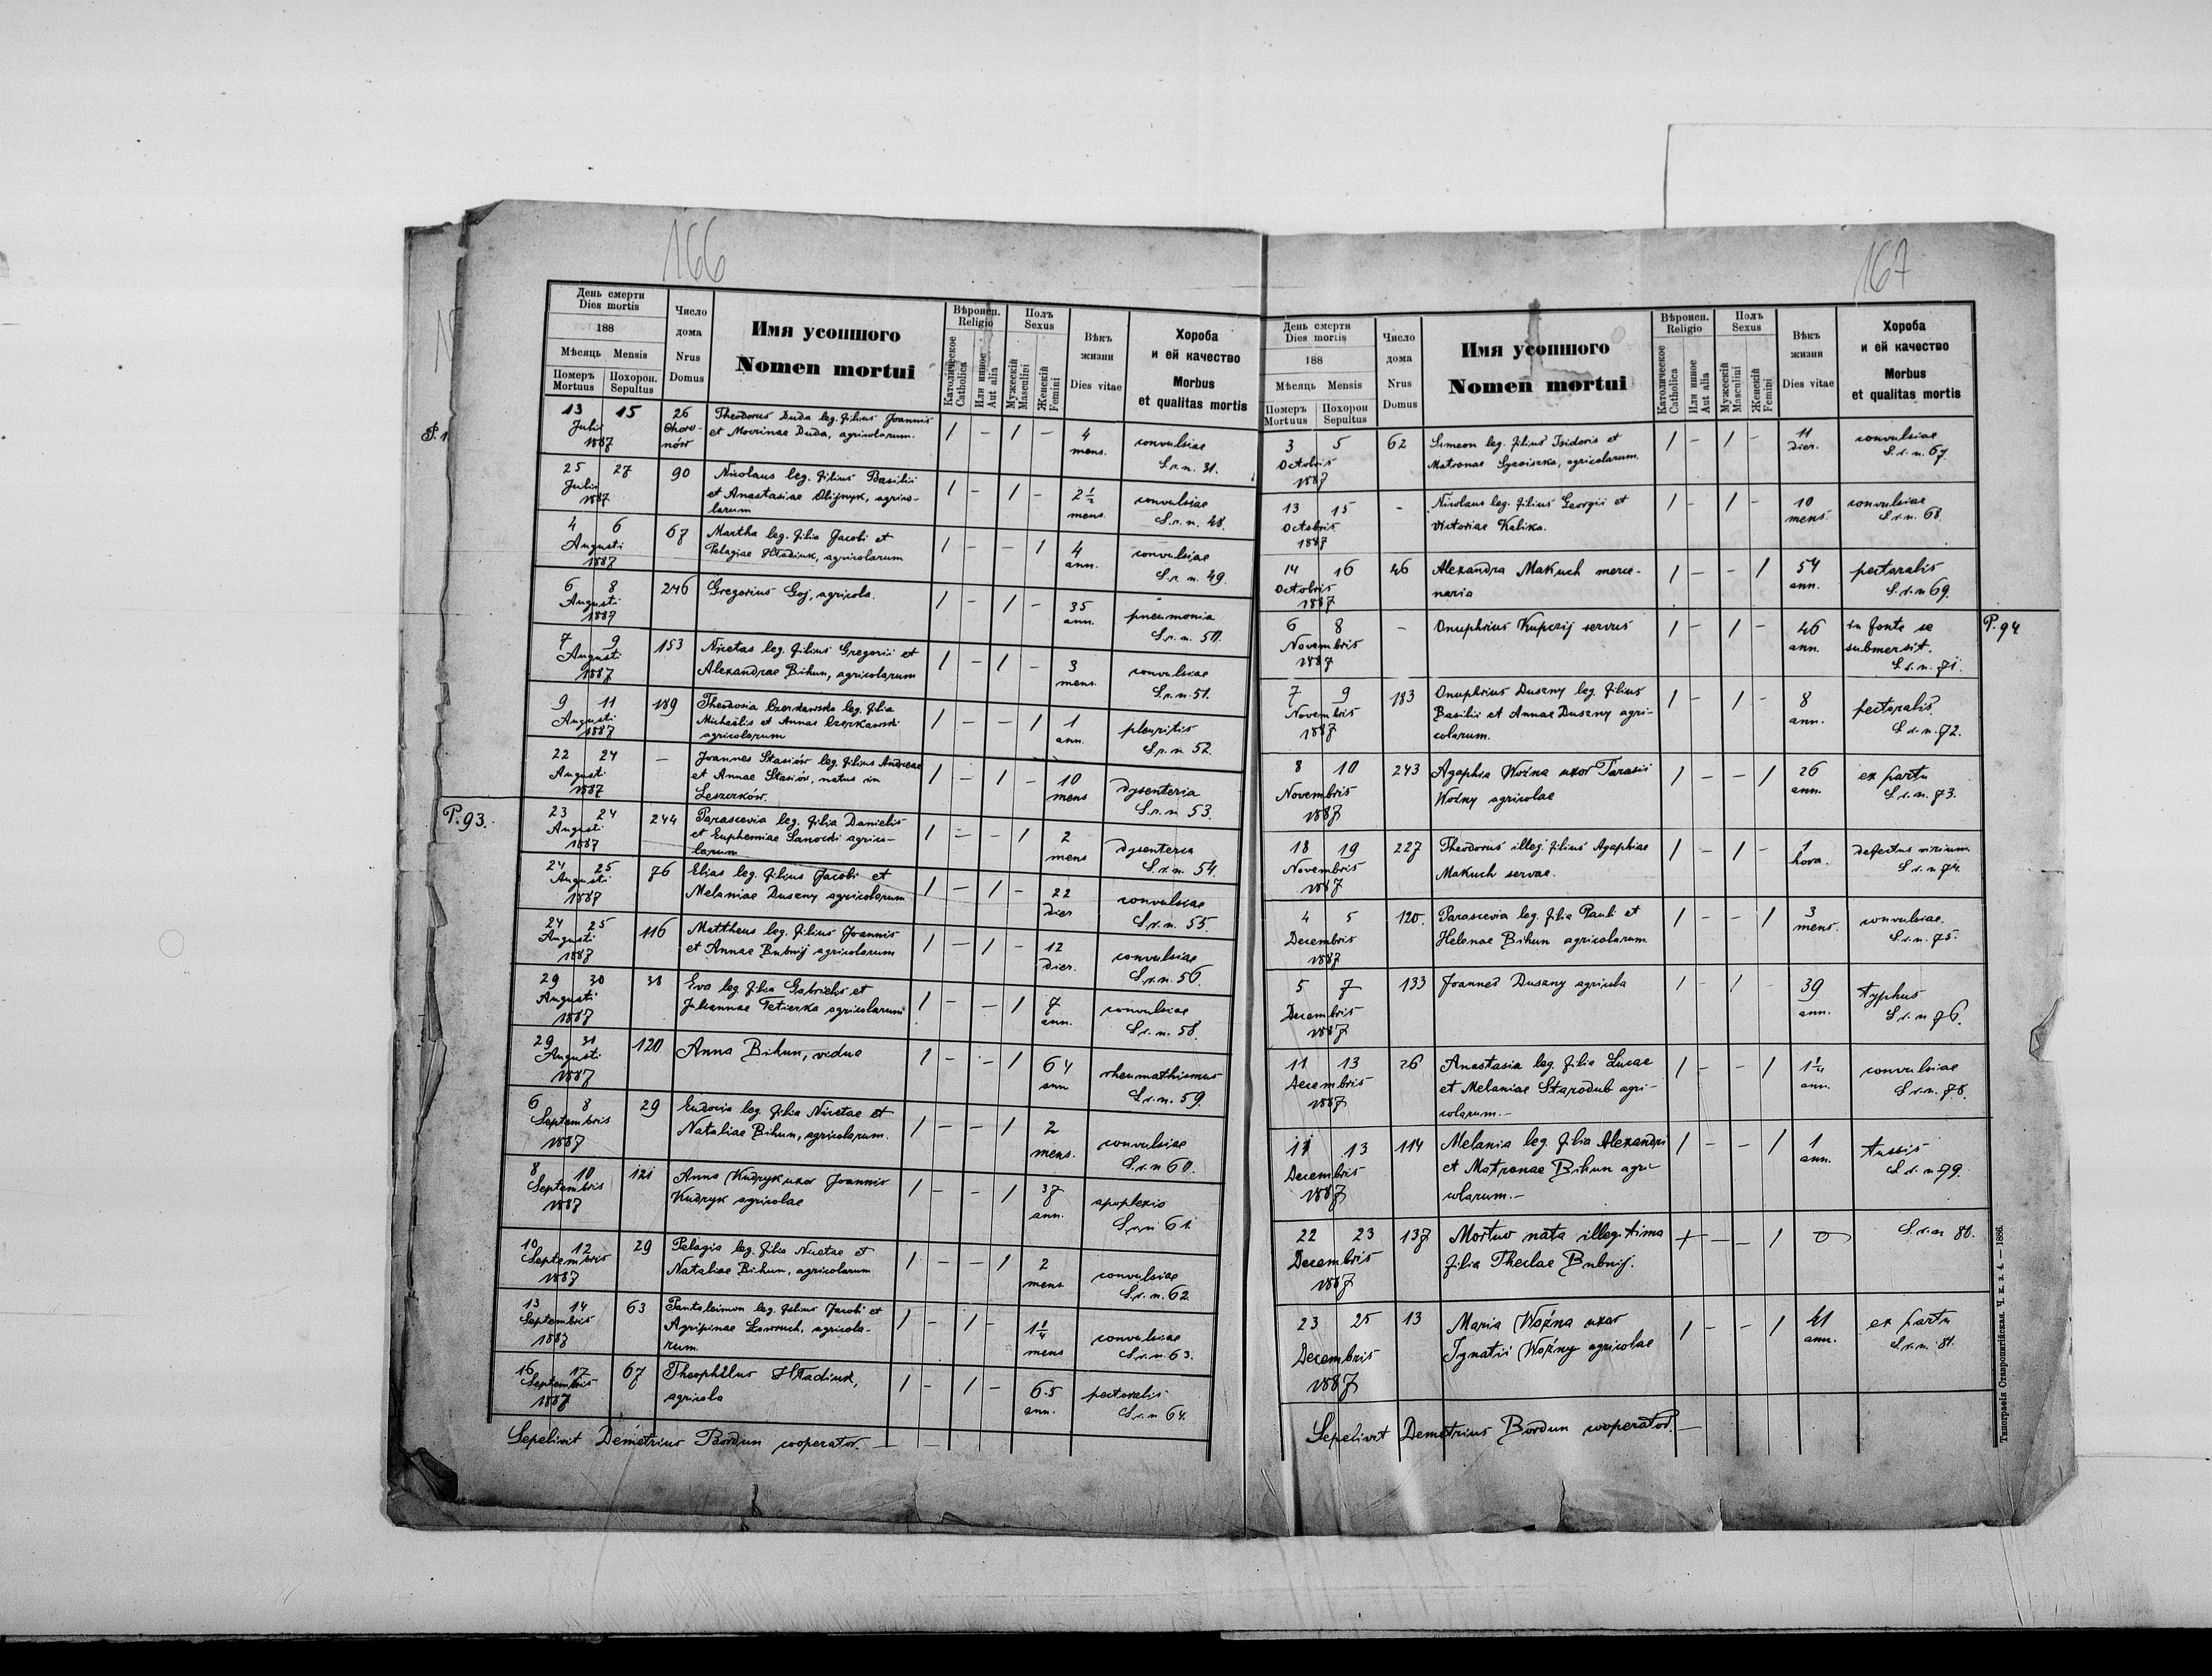 166
День смерти
Dies mortis
188
Мѣсяць Mensis
Померъ Похорон.
Mortuus Sepultus
Число
дома
Nrus
Domus
Имя усопшого
Nomen mortui
Вѣроисп.
Religio
Католическое
Catholica
Или инное
Aut alia
Полъ
Sexus
Мужескій
Masculini
Женскій
Femini
Вѣкъ
жизни
Dies vitae
Хороба
и ей качество
Morbus
et qualitas mortis
13 15 26 Theodorus Duda leg. filius Joannis
Juli Choro- et Mocrinae Duda, agricolarum. / - / - 4 convulsiae
1887 nów mens. S.r.n. 31.
25 27 90 Nicolaus leg. filius Basilii
Julii et Anastasiae Olijnyk, agrico- / - / - 2½ convulsiae
1887 larum mens. S.r.n. 48.
4 6 67 Martha leg. filia Jacobi et
Augusti Pelagiae Hładiuk, agricolarum / - - / 4 convulsiae
1887 ann. S.r.n. 49.
6 8 246 Gregorius Goj, agricola. / - / - 35 pneumonia
Augusti ann. S.r.n. 50.
1887
7 9 153 Nicetas leg. filius Gregorii et
Augusti Alexandrae Bihun, agricolarum / - / - 3 convulsiae
1887 mens. S.r.n. 51.
9 11 189 Theodosia Czerkawska leg. filia
Augusti Michaëlis et Annae Czerkawski / - - / 1 pleuritis
1887 agricolarum ann. S.r.n. 52.
22 24 - Joannes Stasiów leg. filius Andreae
Augusti et Annae Stasiów, natus in / - / - 10 dysenteria
1887 Leszczków. mens S.r.n. 53.
P. 93.
23 24 244 Parascevia leg. filia Danielis
Augusti et Euphemiae Sanocki agrico- / - - / 2 dysenteria
1887 larum mens S.r.n. 54.
24 25 76 Elias leg. filius Jacobi et
Augusti Melaniae Duszny agricolarum / - / - 22 convulsiae
1887 dier S.r.n. 55.
24 25 116 Mattheus leg. filius Joannis
Augusti et Annae Bubnij agricolarum / - / - 12 convulsiae
1887 dier. S.r.n. 56.
29 30 38 Eva leg. filia Gabrielis et
Augusti Juliannae Teticrka agricolarum / - - / 7 convulsiae
1887 ann. S.r.n. 58.
29 31 120 Anna Bihun, vidua / - - / 64 rheumathismus
Augusti ann S.r.n. 59.
1887
6 8 29 Eudocia leg. filia Nicetae et
Septembris Nataliae Bihun, agricolarum. / - - / 2 convulsiae
1887 mens. S.r.n 60.
8 10 121 Anna Kudryk uxor Joannis
Septembris Kudryk agricolae / - - / 37 apoplexio
1887 ann. S.r.n 61.
10 12 29 Pelagia leg. filia Nicetae et
Septembris Nataliae Bihun, agricolarum / - - / 2 convulsiae
1887 mens. S.r.n. 62.
13 14 63 Pantaleimon leg. filius Jacobi et
Septembris Agripinae Ławruch, agricola- / - / - 1¼ convulsiae
1887 rum. mens S.r.n. 63.
16 17 67 Theophilus Hładiuk, / - / - 65 pectoralis
Septembris agricola ann. S.r.n 64.
1887
Sepelivit Demetrius Bordun cooperator. —
167
День смерти
Dies mortis
188
Мѣсяць Mensis
Померъ Похорон
Mortuus Sepultus
Число
дома
Nrus
Domus
Имя усопшого
Nomen mortui
Вѣроисп.
Religio
Католическое
Catholica
Или инное
Aut alia
Полъ
Sexus
Мужескій
Masculini
Женскій
Femini
Вѣкъ
жизни
Dies vitae
Хороба
и ей качество
Morbus
et qualitas mortis
3 5 62 Simeon leg. filius Isidoris et / - / - 11 convulsiae
Octobris Matronae Syroiszka, agricolarum. dier. S.r.n. 67
1887
13 15 - Nicolaus leg. filius Georgii et / - / - 10 convulsiae
Octobris Victoriae Kalika. mens. S.r.n. 68
1887
14 16 46 Alexandra Makuch merce- / - - / 54 pectoralis
Octobris naria ann. S.r.n 69.
1887
6 8 - Onuphrius Kupczij servus / - / - 46 in fonte se P. 94
Novembris ann. submersit.
1887 S.r.n. 71.
7 9 183 Onuphrius Duszny leg. filius / - / - 8 pectoralis.
Novembris Basilii et Annae Duszny agri- ann. S.r.n. 72.
1887 colarum.
8 10 243 Agaphia Woźna uxor Tarasii / - - / 26 ex partu
Novembris Woźny agricolae ann. S.r.n. 73.
1887
18 19 227 Theodorus illeg. filius Agaphiae / - / - 1 defectus virium
Novembris Makuch servae. hora. S.r.n 74.
1887
4 5 120. Parascevia leg. filia Pauli et / - - / 3 convulsiae.
Decembris Helenae Bihun agricolarum mens. S.r.n. 75.
1887
5 7 133 Joannes Duszny agricola / - / - 39 typhus
Decembris ann. S.r.n 76.
1887
11 13 26 Anastasia leg. filia Lucae / - - / 1¼ convulsiae
Decembris et Melaniae Starodub agri- ann. S.r.n. 78.
1887 colarum.-
11 13 114 Melania leg. filia Alexandri / - - / 1 tussis
Decembris et Matronae Bihun agri- ann. S.r.n 79.
1887 colarum.-
22 23 137 Mortuo nata illegitima + - - / 0 S.r.n 80.
Decembris filia Theclae Bubnij.
1887
23 25 13 Maria Woźna uxor / - - / 41 ex partu
Decembris Ignatii Woźny agricolae ann. S.r.n. 81.
1887
Sepelivit Demetrius Bordun cooperator. —
Типографія Ставропигійская. Ч. к. з. 4. — 1886.